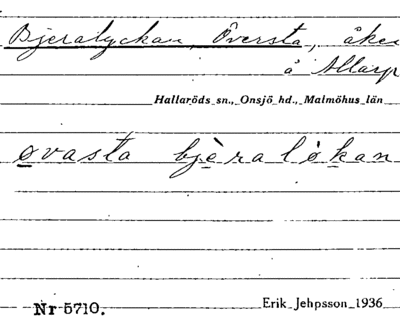 Bjeralyckan, Översta, åker
å Allarp
Hallaröds sn., Onsjö hd., Malmöhus län
øvasta bjèraløkan
Nr 5710.
Erik Jehpsson 1936